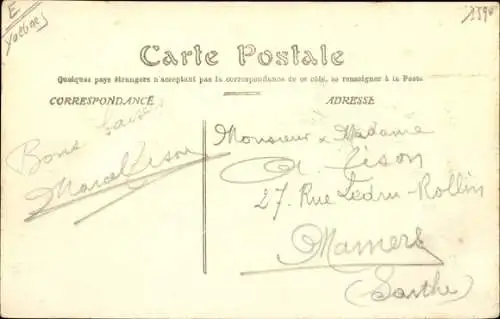 E
Yvelines
Carte Postale
Quelques pays étrangers n'acceptent pas la correspondance de ce côté, se renseigner à la Poste
CORRESPONDANCE
ADRESSE
Bons baisers
Marcel Tison
Monsieur & Madame
A. Tison
27. Rue Ledru-Rollin
Mamers
(Sarthe)